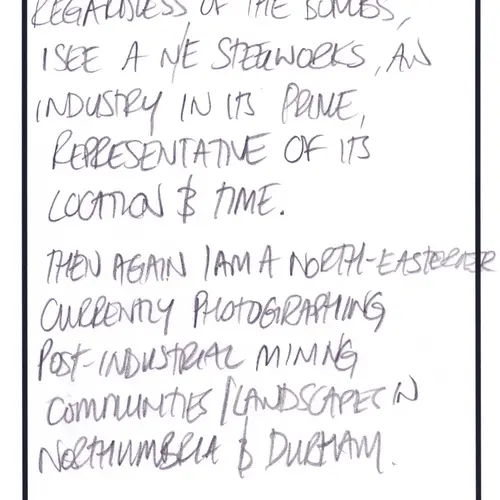 REGARDLESS OF THE BOMBS,
I SEE A N/E STEELWORKS, AN
INDUSTRY IN ITS PRIME,
REPRESENTATIVE OF ITS
LOCATION & TIME.
THEN AGAIN I AM A NORTH-EASTERNER
CURRENTLY PHOTOGRAPHING
POST-INDUSTRIAL MINING
COMMUNITIES / LANDSCAPES IN
NORTHUMBRIA & DURHAM.